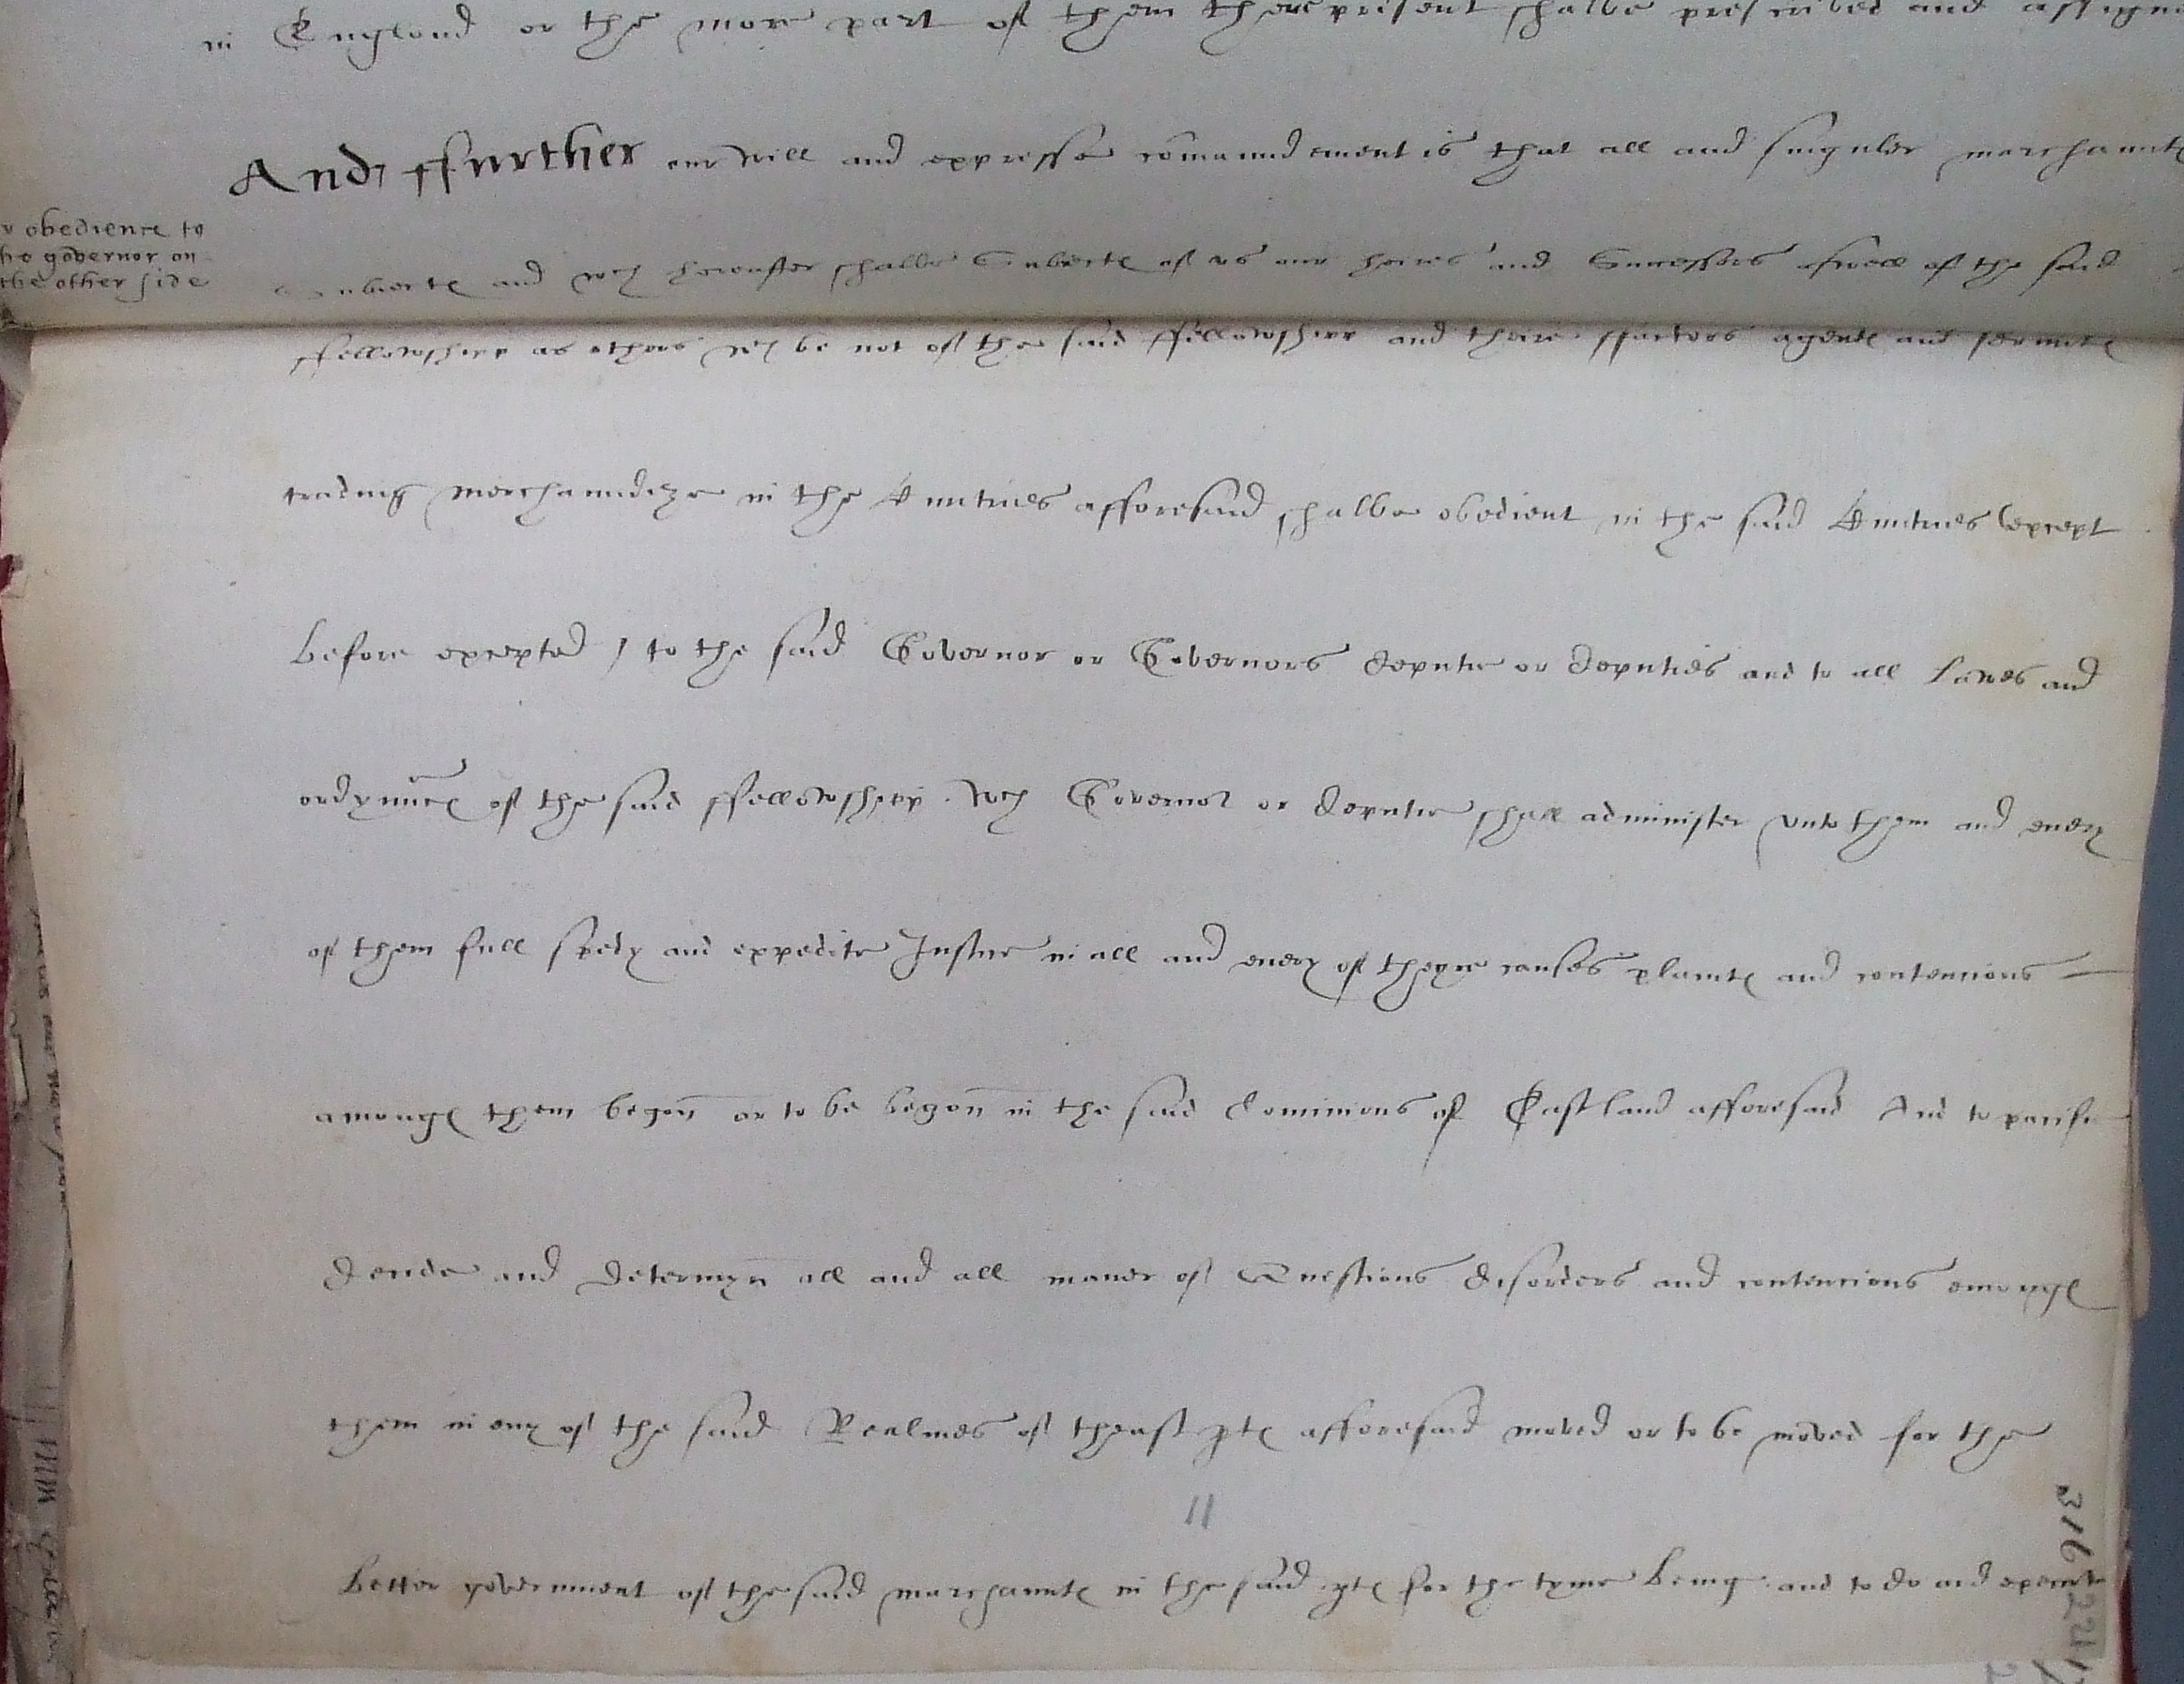 in England or the more part of them there present shalbe prescribed and assigne
And ffurther our will and expresse comaundement is that all and singuler marchaunte
obedience to
he governor on
the other side
Subiecte and wch hereafter shalbe Subiecte of us our heires and Successors aswell of the said
ffellowshipp as others wch be not of the said ffellowshipp and theire ffactors agente and servnte
trading merchaundize in the Cuntries afforesaid shalbe obedient in the said Cuntries (except
before excepted) to the said Governor or Governors deputie or deputies and to all Lawes and
ordynnce of the said ffellowshipp. wch Governor or deputie shall administer unto them and every
of them full spedy and expedite Justice in all and every of theyre causes plainte and contencions
amonge them begon or to be begon in the said dominions of Eastland afforesaid And to pacifie
decide and determyn all and all maner of Questions disorders and contencions emonge
them in any of the said Realmes of theast pte afforesaid moved or to be moved for the
11
better government of the said marchaunte in the said pte for the tyme being. and to do and execute
316